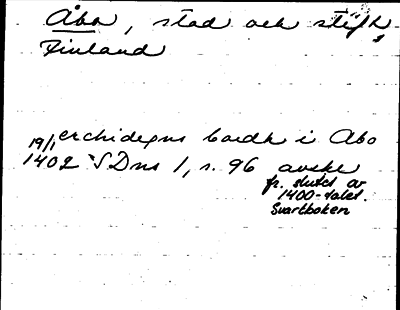 Åbo, stad och stift,
Finland
19/1 erchidegns bordh i Abo
1402 SDns 1, s. 96 avskr
fr. slutet av
1400-talet.
Svartboken